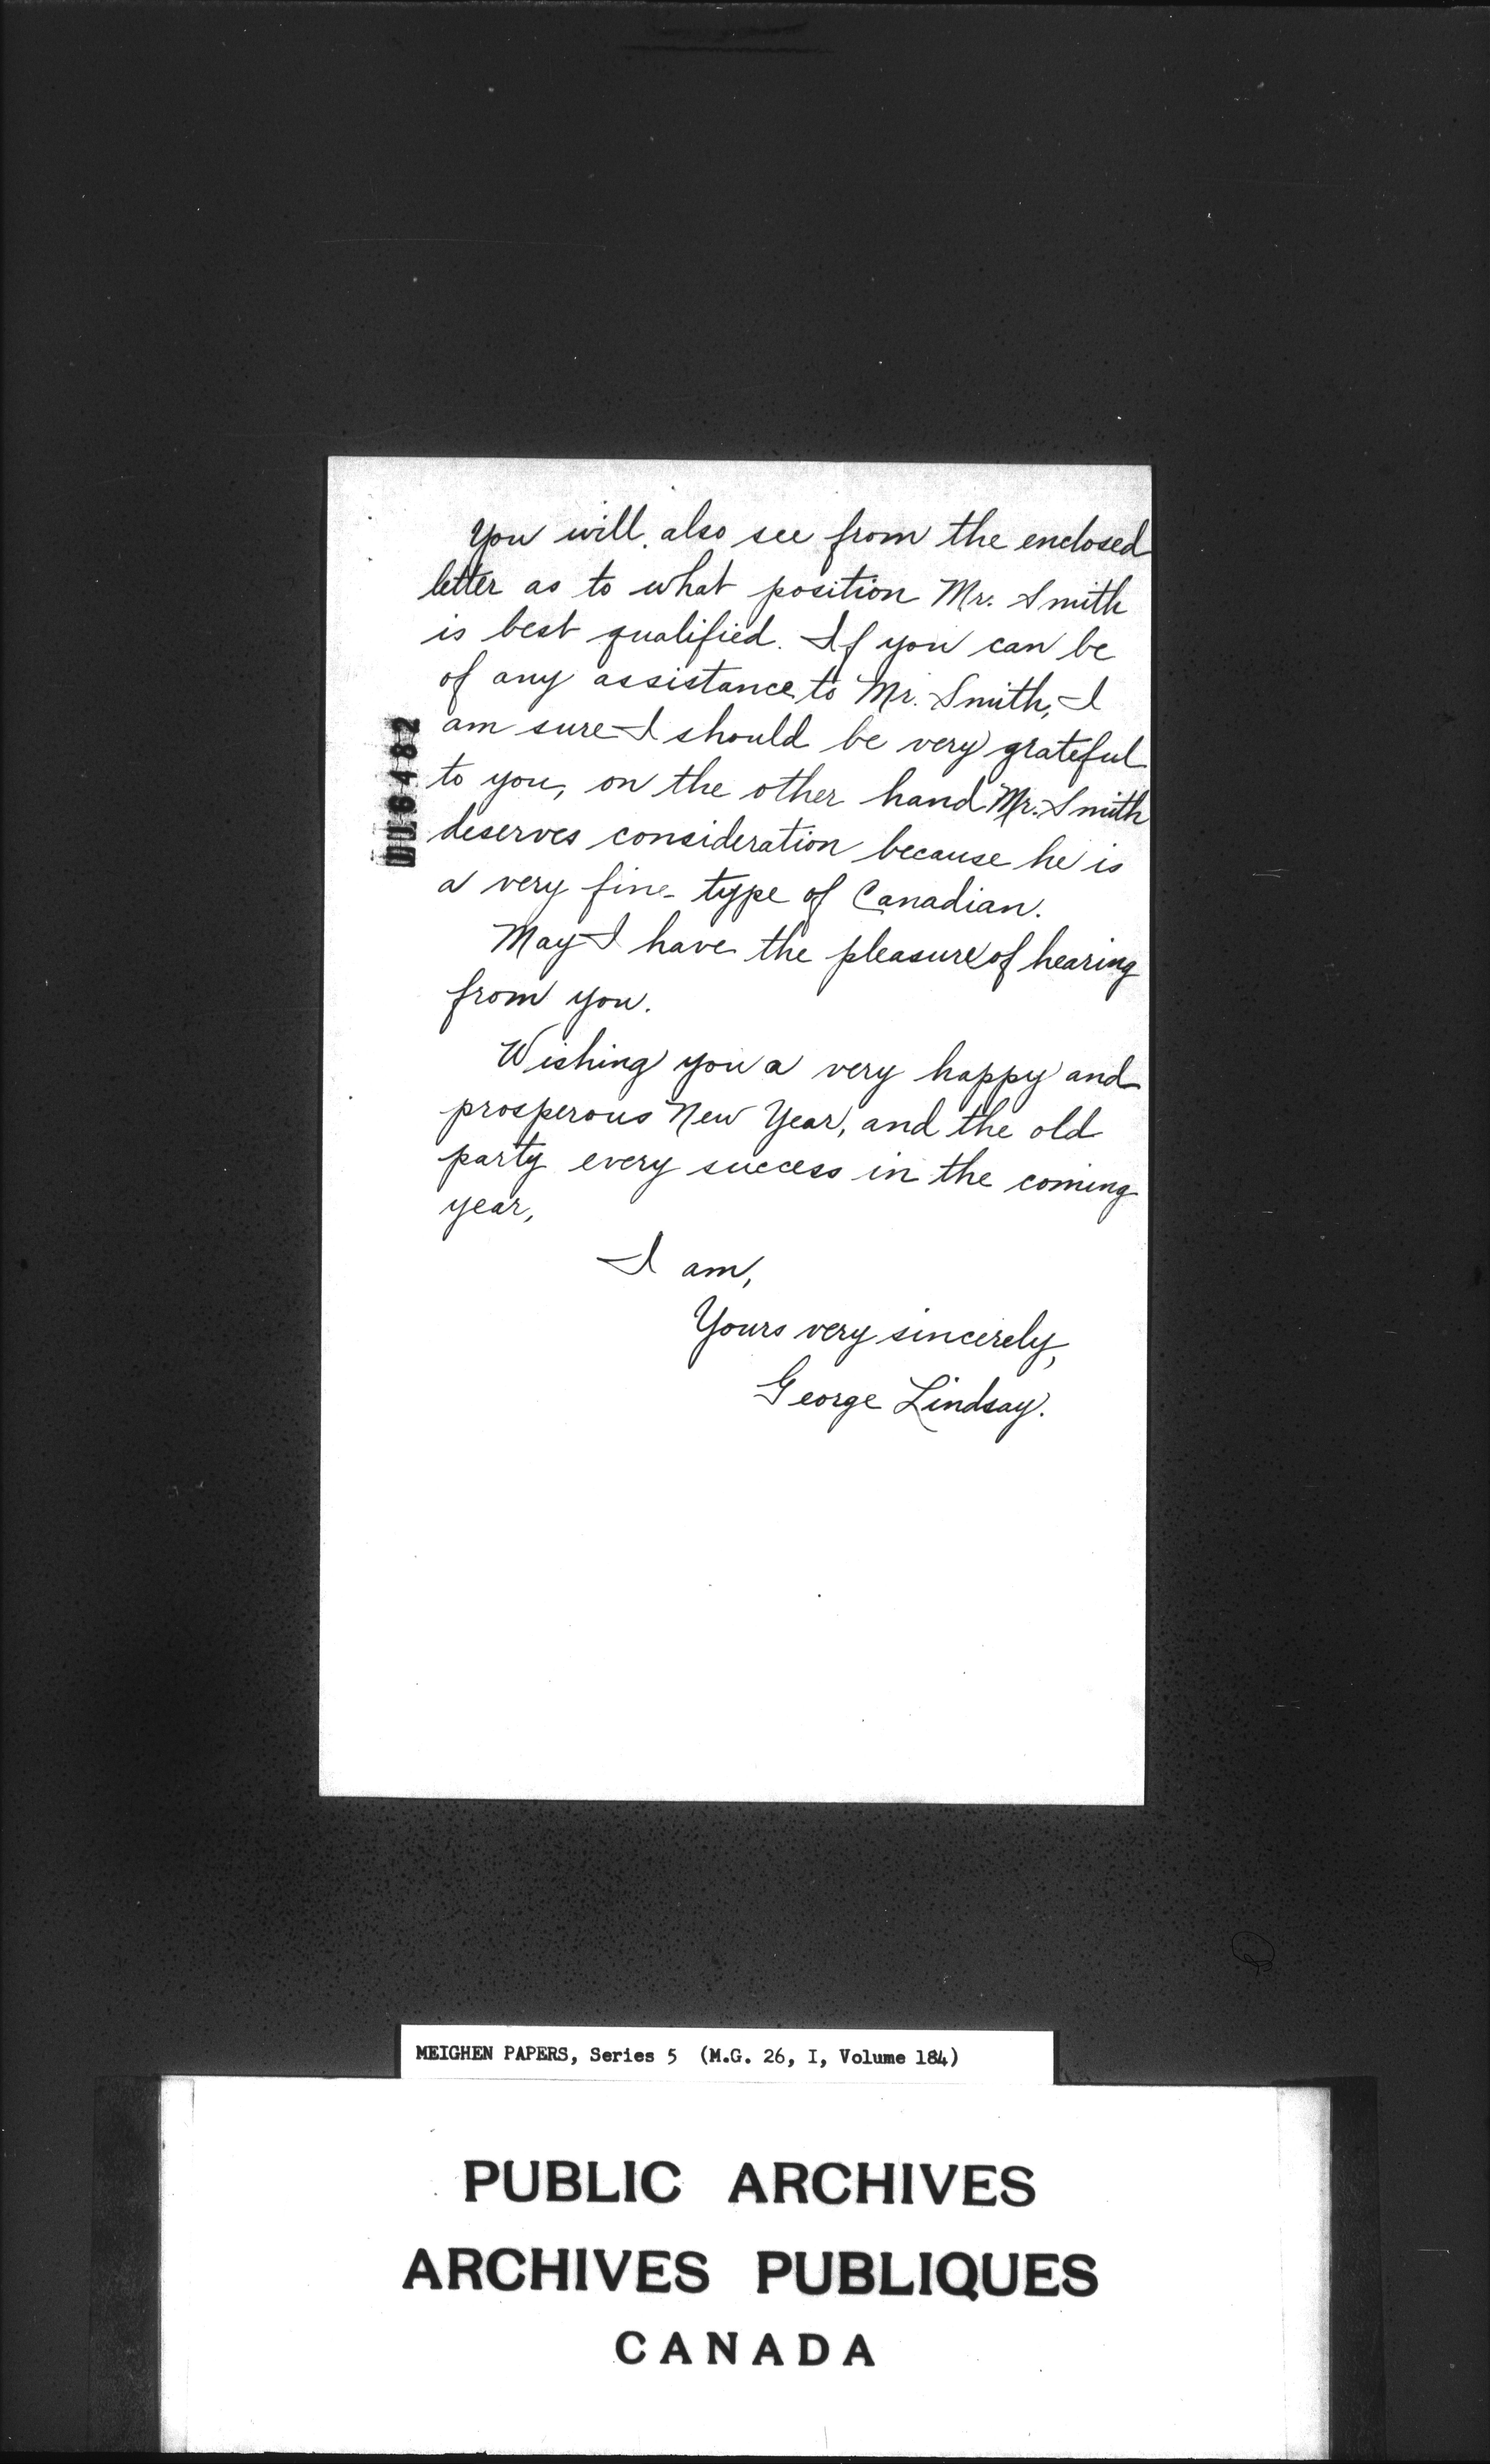 You will also see from the enclosed
letter as to what position Mr. Smith
is best qualified. If you can be
of any assistance to Mr. Smith, I
am sure I should be very grateful
to you, on the other hand Mr. Smith
deserves consideration because he is
a very fine type of Canadian.
May I have the pleasure of hearing
from you.
Wishing you a very happy and
prosperous New Year, and the old
party every success in the coming
year,
I am,
Yours very sincerely,
George Lindsay.
MEIGHEN PAPERS, Series 5 (M.G. 26, I, Volume 184)
PUBLIC ARCHIVES
ARCHIVES PUBLIQUES
CANADA